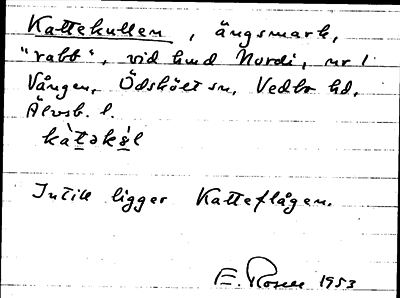 Kattekullen, ängsmark,
"rabb", vid hmd Nordi, nr 1
Vången, Ödskölt sn, Vedbo hd,
Älvsb. l.
kàtəkól
Intill ligger Katteflågen.
E. Rosell 1953